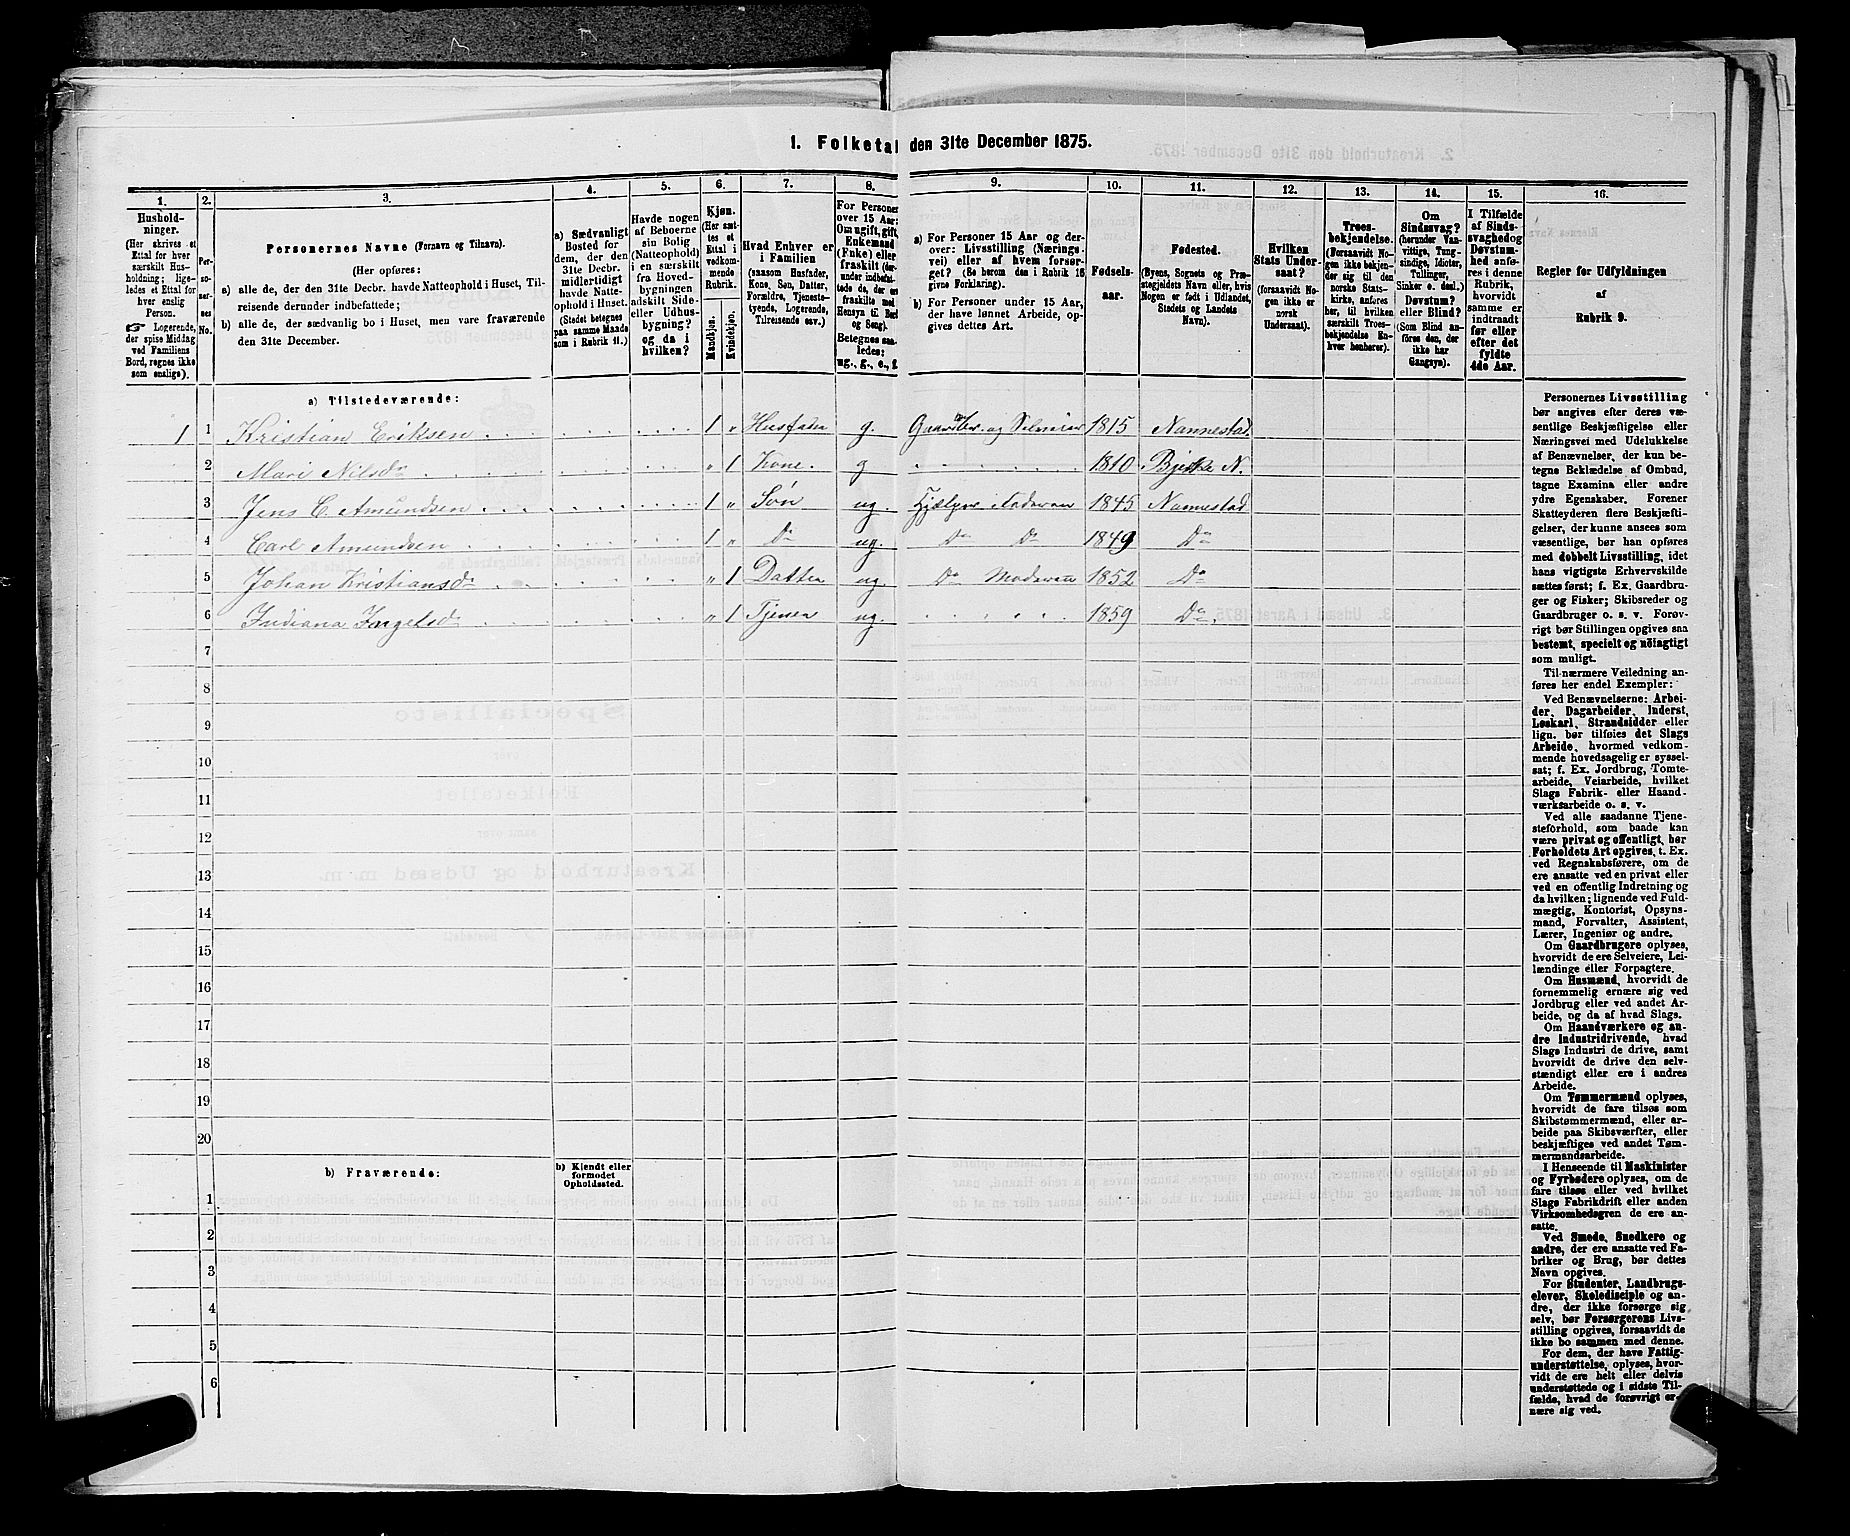 1. Folketal den 31te December 1875.
1. 2. 3. 4. 5. 6. 7. 8. 9. 10. 11. 12. 13. 14. 15. 16.
Hushold-
ninger.
(Her skrives et
Ettal for hver
særskilt Hus-
holdning; lige-
ledes et Ettal for
hver enslig
Person.
☞ Logerende,
der spise Middag
ved Familiens
Bord, regnes ikke
som enslige).
Per-
so-
ner-
nes
No.
Personernes Navne (Fornavn og Tilnavn).
(Her opføres:
a) alle de, der den 31te Decbr. havde Natteophold i Huset, Til-
reisende derunder indbefattede;
b) alle de, der sædvanlig bo i Huset, men vare fraværende
den 31te December.
a) Sædvanligt
Bosted for
dem, der den
31te Decbr.
midlertidigt
havde Natte-
ophold i Huset.
(Stedet betegnes
paa samme Maade
som i Rubrik 11.)
Havde nogen
af Beboerne
sin Bolig
(Natteophold)
i en særskilt
fra Hoved-
bygningen
adskilt Side-
eller Udhus-
bygning?
og da i
hvilken?
Kjøn.
(Her sæt-
tes et
Ettal i
vedkom-
mende
Rubrik.
Mandkjøn.
Kvindekjøn.
Hvad Enhver er
i Familien
(saasom Husfader,
Kone, Søn, Datter,
Forældre, Tjeneste-
tyende, Logerende,
Tilreisende osv.)
For Personer
over 15 Aar:
Om ugift, gift,
Enkemand
(Enke) eller
fraskilt (der-
under indbefat-
tede de, der ere
fraskilte med
Hensyn til Bord
og Seng).
Betegnes saa-
ledes:
ug., g., e., f.
a) For Personer 15 Aar og der-
over: Livsstilling (Nærings-
vei) eller af hvem forsør-
get? (Se herom den i Rubrik 16
givne Forklaring).
b) For Personer under 15 Aar,
der have lønnet Arbeide, op-
gives dettes Art.
Fødsels-
aar.
Fødested.
(Byens, Sognets og Præ-
stegjeldets Navn eller, hvis
Nogen er født i Udlandet,
Stedets og Landets
Navn).
Hvilken
Stats Under-
saat?
(forsaavidt No-
gen ikke er
norsk
Undersaat).
Troes-
bekjendelse.
(Forsaavidt No-
gen ikke bekjen-
der sig til den
norske Stats-
kirke, anføres
her, til hvilken
særskilt Troes-
bekjendelse En-
hver henhører).
Om
Sindssvag?
(herunder Van-
vittige, Tung-
sindige, Idioter,
Tullinger,
Sinker o. desl.)
Døvstum?
eller Blind?
(Som Blind an-
føres den, der
ikke har
Gangsyn).
I Tilfælde
af Sinds-
svaghed og
Døvstum-
hed anfø-
res i denne
Rubrik,
hvorvidt
samme er
indtraadt
før eller
efter det
fyldte
4de Aar.
Regler for Udfyldningen
af
Rubrik 9.
a) Tilstedeværende:
1 1 Kristian Eriksen 1 " Husfader g. Gaardbr. og Selveier 1815 Nannestad.
2 Mari Nilsd " 1 Kone. g 1810 Bjerke N.
3 Jens C. Amundsen 1 " Søn ug. Hjælper i Aadsvan 1845 Nannestad
4 Carl Amundsen 1 " Do ug. Do Do 1849 Do
5 Johan Kristiansd " 1 Datter ug. Do Moderen 1852 Do
6 Indiana Ingelsd " 1 Tjener ug. 1859 Do.
7
8
9
10
11
12
13
14
15
16
17
18
19
20
b) Fraværende:
b) Kjendt eller
formodet
Opholdssted.
1
2
3
4
5
6
Personernes Livsstilling
bør angives efter deres væ-
sentlige Beskjæftigelse eller
Næringsvei med Udelukkelse
af Benævnelser, der kun be-
tegne Beklædelse af Ombud,
tagne Examina eller andre
ydre Egenskaber. Forener
Skatteyderen flere Beskjæfti-
gelser, der kunne ansees som
væsentlige, bør han opføres
med dobbelt Livsstilling, idet
hans vigtigste Erhvervskilde
sættes først; f. Ex. Gaardbru-
ger og Fisker; Skibsreder og
Gaardbruger o. s. v. Forøv-
rigt bør Stillingen opgives saa
bestemt, specielt og nöiagtigt
som muligt.
Til nærmere Veiledning an-
føres her endel Exempler:
Ved Benævnelserne: Arbei-
der, Dagarbeider, Inderst,
Løskarl, Strandsidder eller
lign. bør tilføies det Slags
Arbeide, hvormed vedkom-
mende hovedsagelig er syssel-
sat; f. Ex. Jordbrug, Tomte-
arbeide, Veiarbeide, hvilket
Slags Fabrik- eller Haand-
værksarbeide o. s. v.
Ved alle saadanne Tjene-
steforhold, som baade kan
være privat og offentligt, bør
Forholdets Art opgives, t. Ex.
ved Regnskabsførere, om de
ere ansatte ved en privat eller
ved en offentlig Indretning og
da hvilken; lignende ved Fuld-
mægtig, Kontorist, Opsyns-
mand, Forvalter, Assistent,
Lærer, Ingeniør og andre.
Om Gaardbrugere oplyses,
hvorvidt de ere Selveiere, Lei-
lændinge eller Forpagtere.
Om Husmænd, hvorvidt de
fornemmelig ernære sig ved
Jordbrug eller ved andet Ar-
beide, og da af hvad Slags.
Om Haandværkere og an-
dre Industridrivende, hvad
Slags Industri de drive, samt
hvorvidt de drive den selv-
stændigt eller ere i andres
Arbeide.
Om Tømmermænd oplyses,
hvorvidt de fare tilsøs som
Skibstømmermænd, eller ar-
beide paa Skibsværfter, eller
beskjæftiges ved andet Tøm-
mermandsarbeide.
I Henseende til Maskinister
og Fyrbødere oplyses, om de
fare tilsøs eller ved hvilket
Slags Fabrikdrift eller anden
Virksomhedsgren de ere an-
satte.
Ved Smede, Snedkere og
andre, der ere ansatte ved Fa-
briker og Brug, bør dettes
Navn opgives.
For Studenter, Landbrugs-
elever, Skoledisciple og an-
dre, der ikke forsørge sig
selv, bør Forsørgerens Livs-
stilling opgives, forsaavidt de
ikke bo sammen med denne.
For dem, der have Fattig-
understøttelse, oplyses, hvor-
vidt de ere helt eller delvis
understøttede og i sidste Til-
fælde, hvad de forøvrigt er-
nære sig ved.